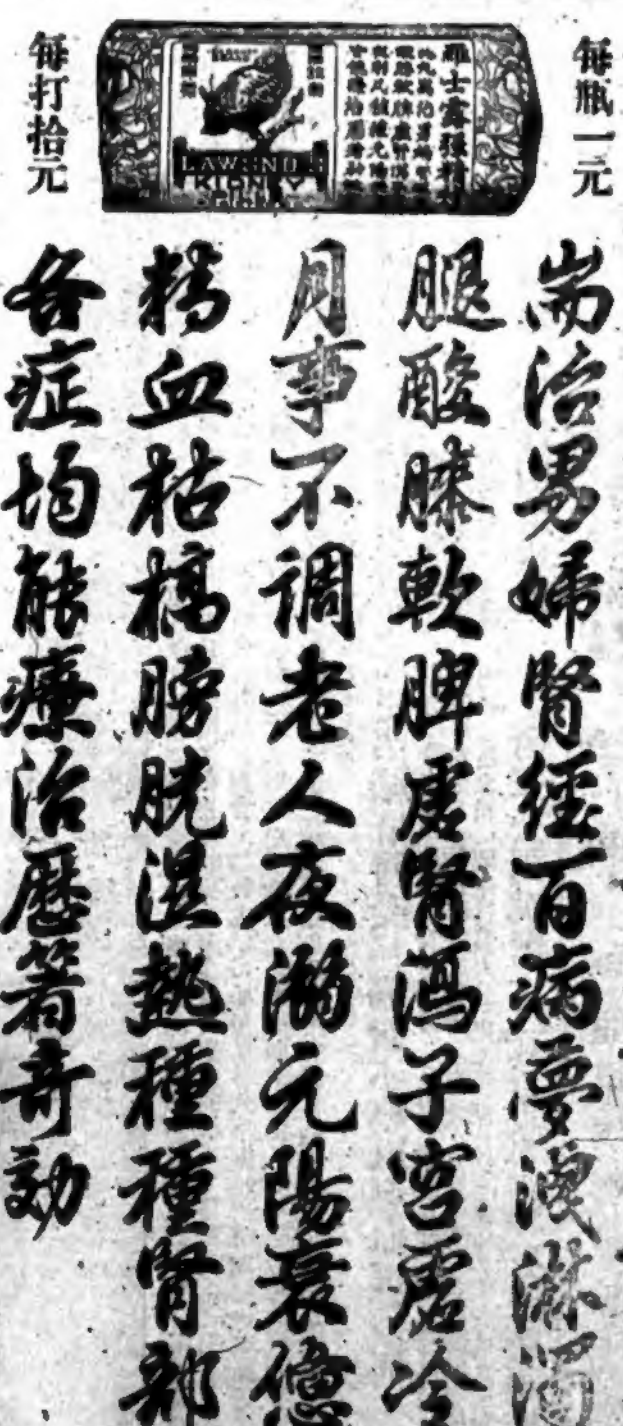 每瓶一元
每打拾元
LAWSND'S
KIDNEY
耑治男婦腎經百病夢洩淋濁
腿酸膝軟脾虛腎瀉子宮虛冷
月事不調老人夜溺元陽衰憊
精血枯槁膀胱濕熱種種腎部
各症均能療治歷著奇効